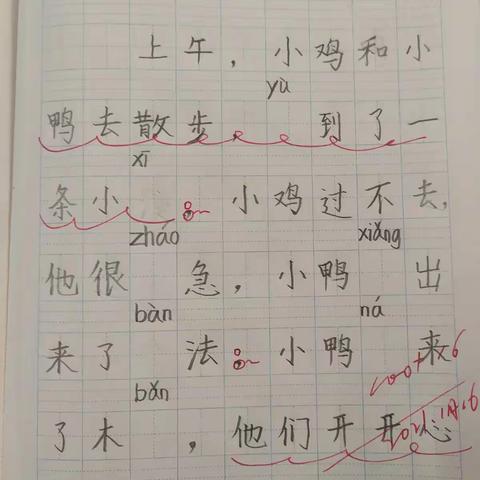 上午，小鸡和小
yù
鸭去散步，到了一
xī
条小。小鸡过不去，
zháo xiǎng
他很急，小鸭出
bàn ná
来了法。小鸭来
bǎn
了木，他们开开心